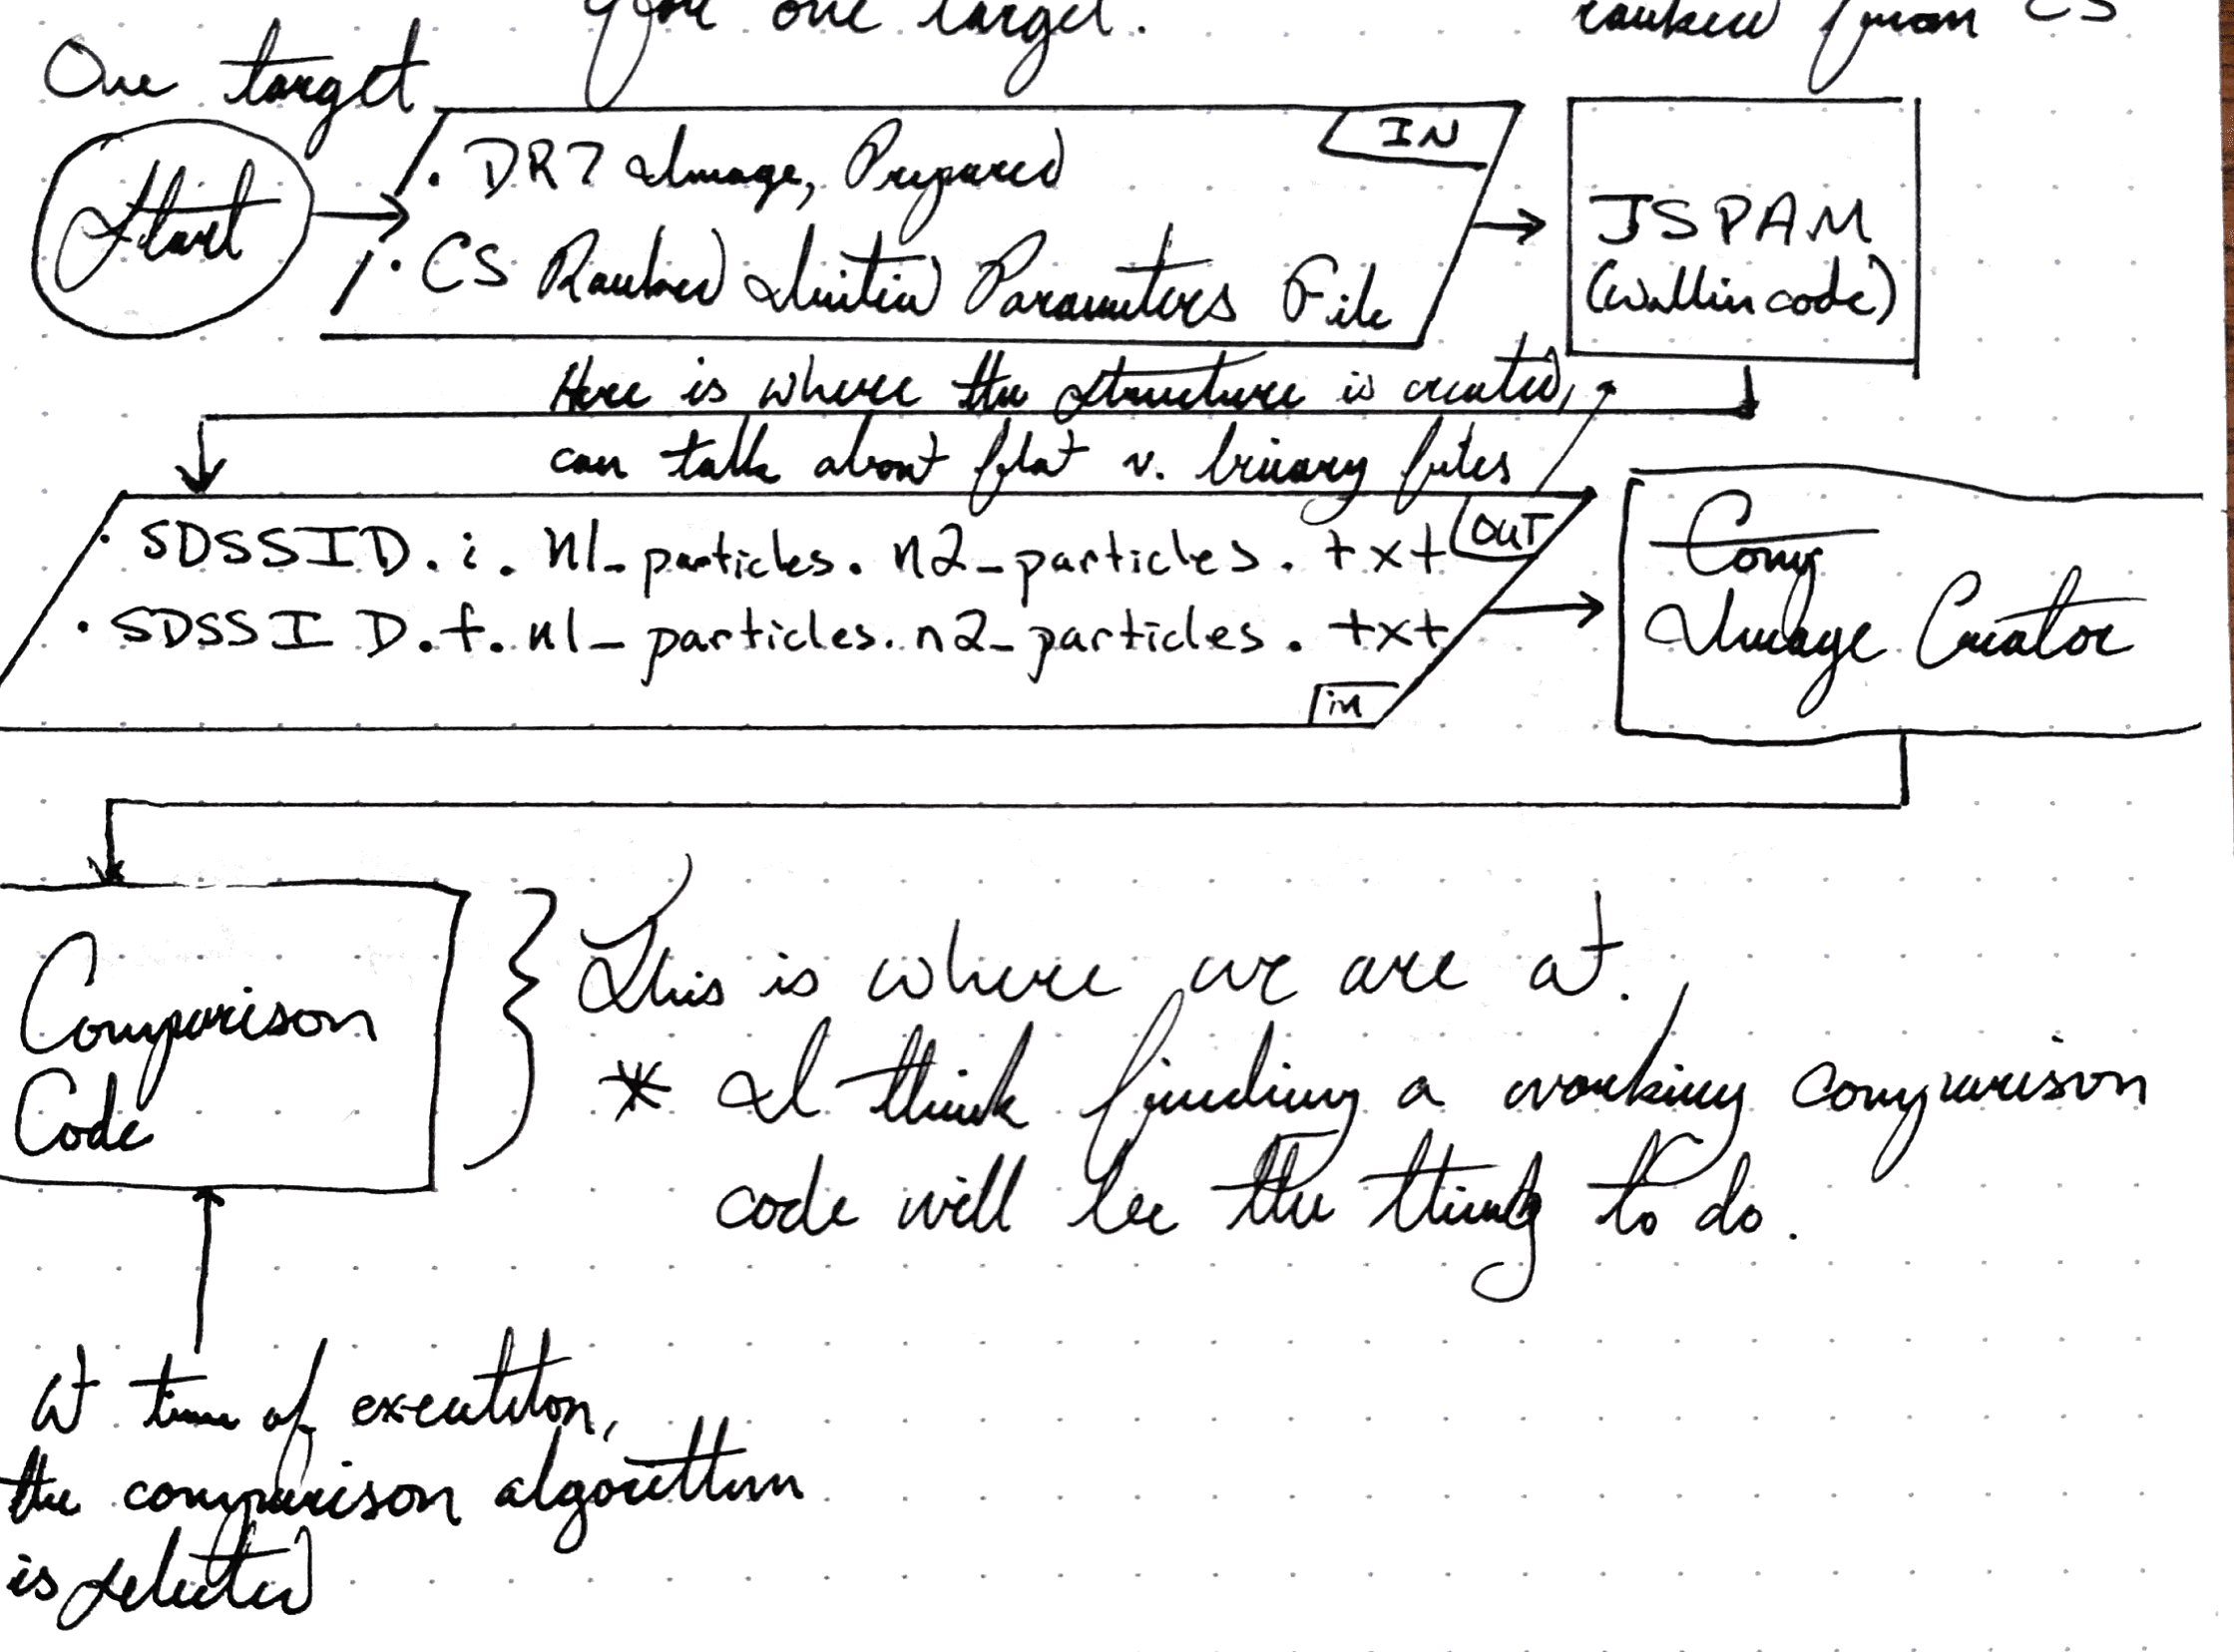 for one target.
ranked from CS
One target
Start
IN
• DR7 Image, Prepared
• CS Ranked Initial Parameters File
JSPAM
(Wallin code)
Here is where the structure is created,
can talk about flat v. binary files
OUT
• SDSSID. i. n1_particles. n2_particles. txt
• SDSSID. f. n1_particles. n2_particles. txt
in
Image Creator
Comparison
Code
This is where we are at.
* I think finding a working comparison
code will be the thing to do.
At time of execution,
the comparison algorithm
is selected